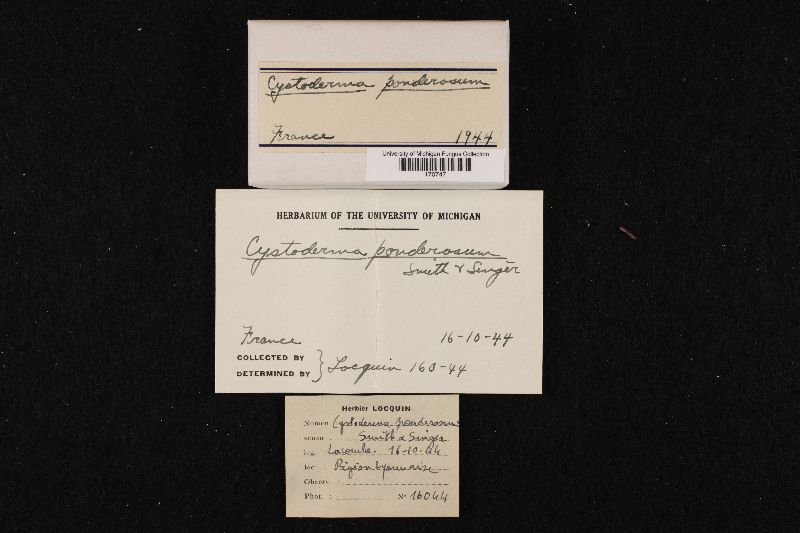 Cystoderma ponderosum
France 1944
University of Michigan Fungus Collection
170747
HERBARIUM OF THE UNIVERSITY OF MICHIGAN
Cystoderma ponderosum
Smith & Singer
France 16-10-44
COLLECTED BY
DETERMINED BY } Locquin 160-44
Herbier LOCQUIN
Nomen Cystoderma ponderosum
sensu : Smith & Singer
leg. Lacombe. 16-10-44
loc : Région Lyonnaise
Observ. :
Phot. : N° 16044